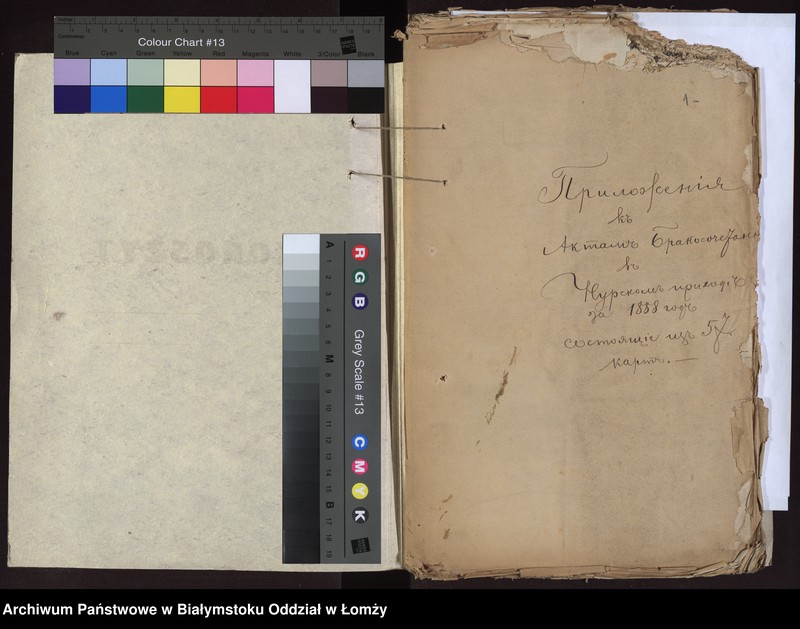 Colour Chart #13
Blue Cyan Green Yellow Red Magenta White 3/Color Black
1-
Приложенія
къ
Актамъ Бракосочетанія
въ
Нурскомъ приходѣ
за 1888 годъ
состоящіе изъ 57
картъ. —
R G B
Grey Scale #13
C M Y K
A 1 2 3 4 5 6 M 8 9 10 11 12 13 14 15 B 17 18 19
Archiwum Państwowe w Białymstoku Oddział w Łomży